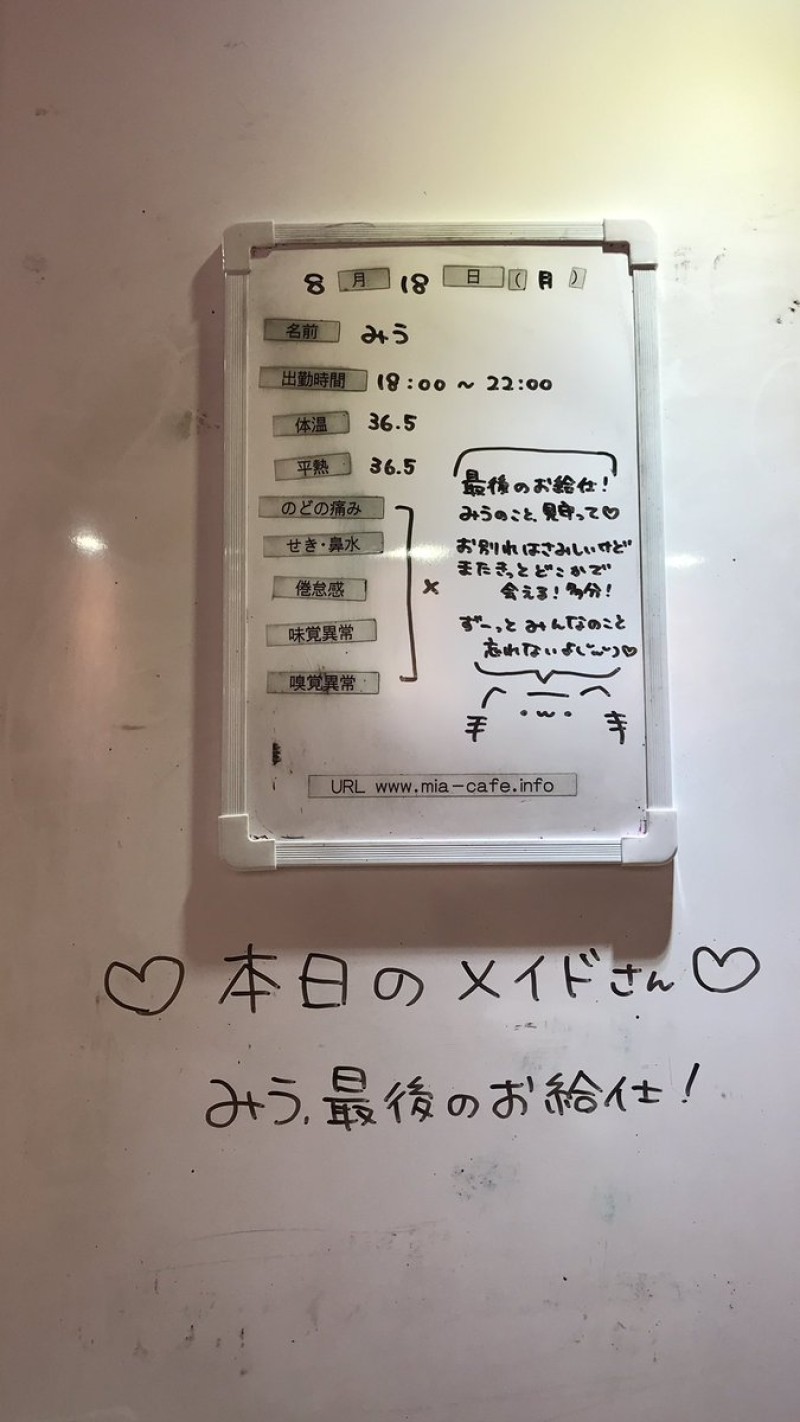 8月18日(月)
名前 みう
出勤時間 18:00 ~ 22:00
体温 36.5
平熱 36.5
のどの痛み
せき・鼻水
倦怠感
味覚異常
嗅覚異常
×
最後のお給仕!
みうのこと、見守って♡
お別れはさみしいけど
またきっとどこかで
会える!多分!
ずーっとみんなのこと
忘れないよ(˘ω˘)♡
URL www.mia-cafe.info
♡本日のメイドさん♡
みう、最後のお給仕!